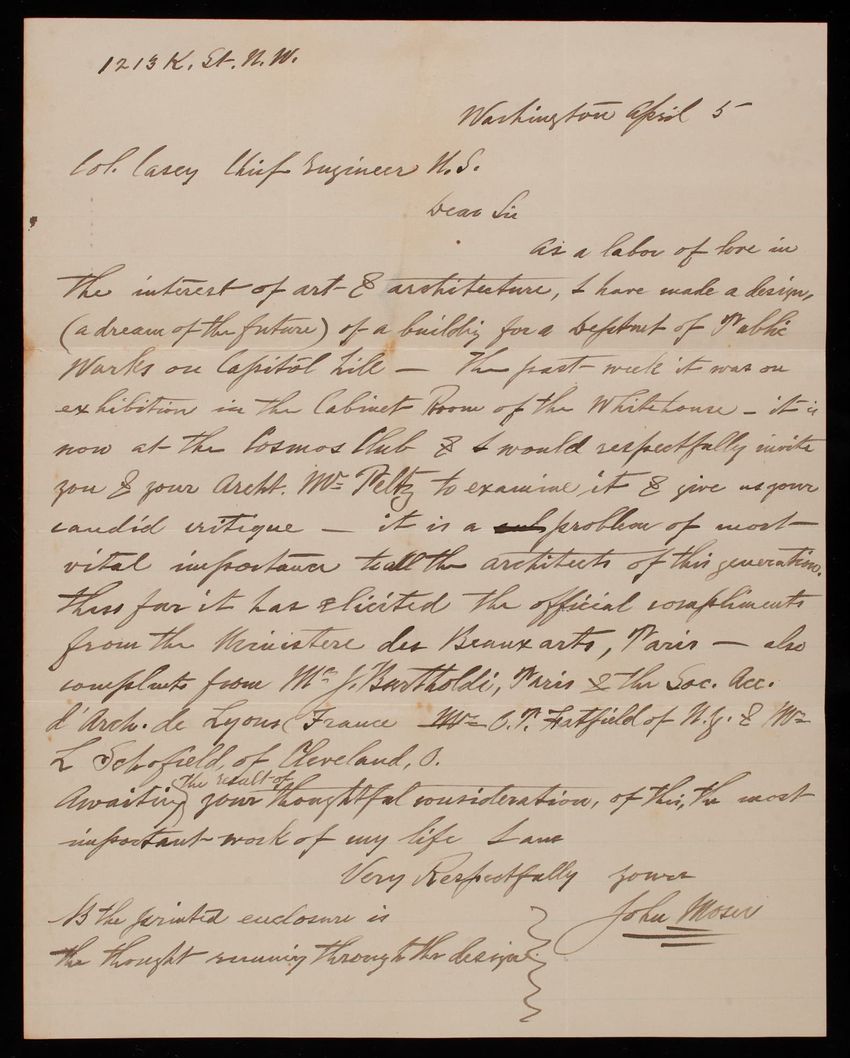 1213 K. St. N. W.
Washington April 5
Col. Casey Chief Engineer U. S.
Dear Sir
As a labor of love in
the interest of art & architecture, I have made a design,
(a dream of the future) of a building for a Deptmt of Public
Works on Capitol hill — The past week it was on
exhibition in the Cabinet Room of the Whitehouse — it is
now at the Cosmos Club & I would respectfully invite
you & your Archt. Mr Peltz to examine it & give us your
candid critique — it is a problem of most
vital importance to all the architects of this generation.
thus far it has elicited the official compliments
from the Ministere des Beaux arts, Paris — also
complmts from Mr J. Bartholdi, Paris & the Soc. Acc.
d'Arch. de Lyons France Mr O. P. Hatfield of N. Y. & Mr
L Schofield, of Cleveland, O.
Awaiting the result of your thoughtful consideration, of this, the most
important work of my life I am
Very Respectfully yours
John Moser
NB the printed enclosure is
the thought running through the design.